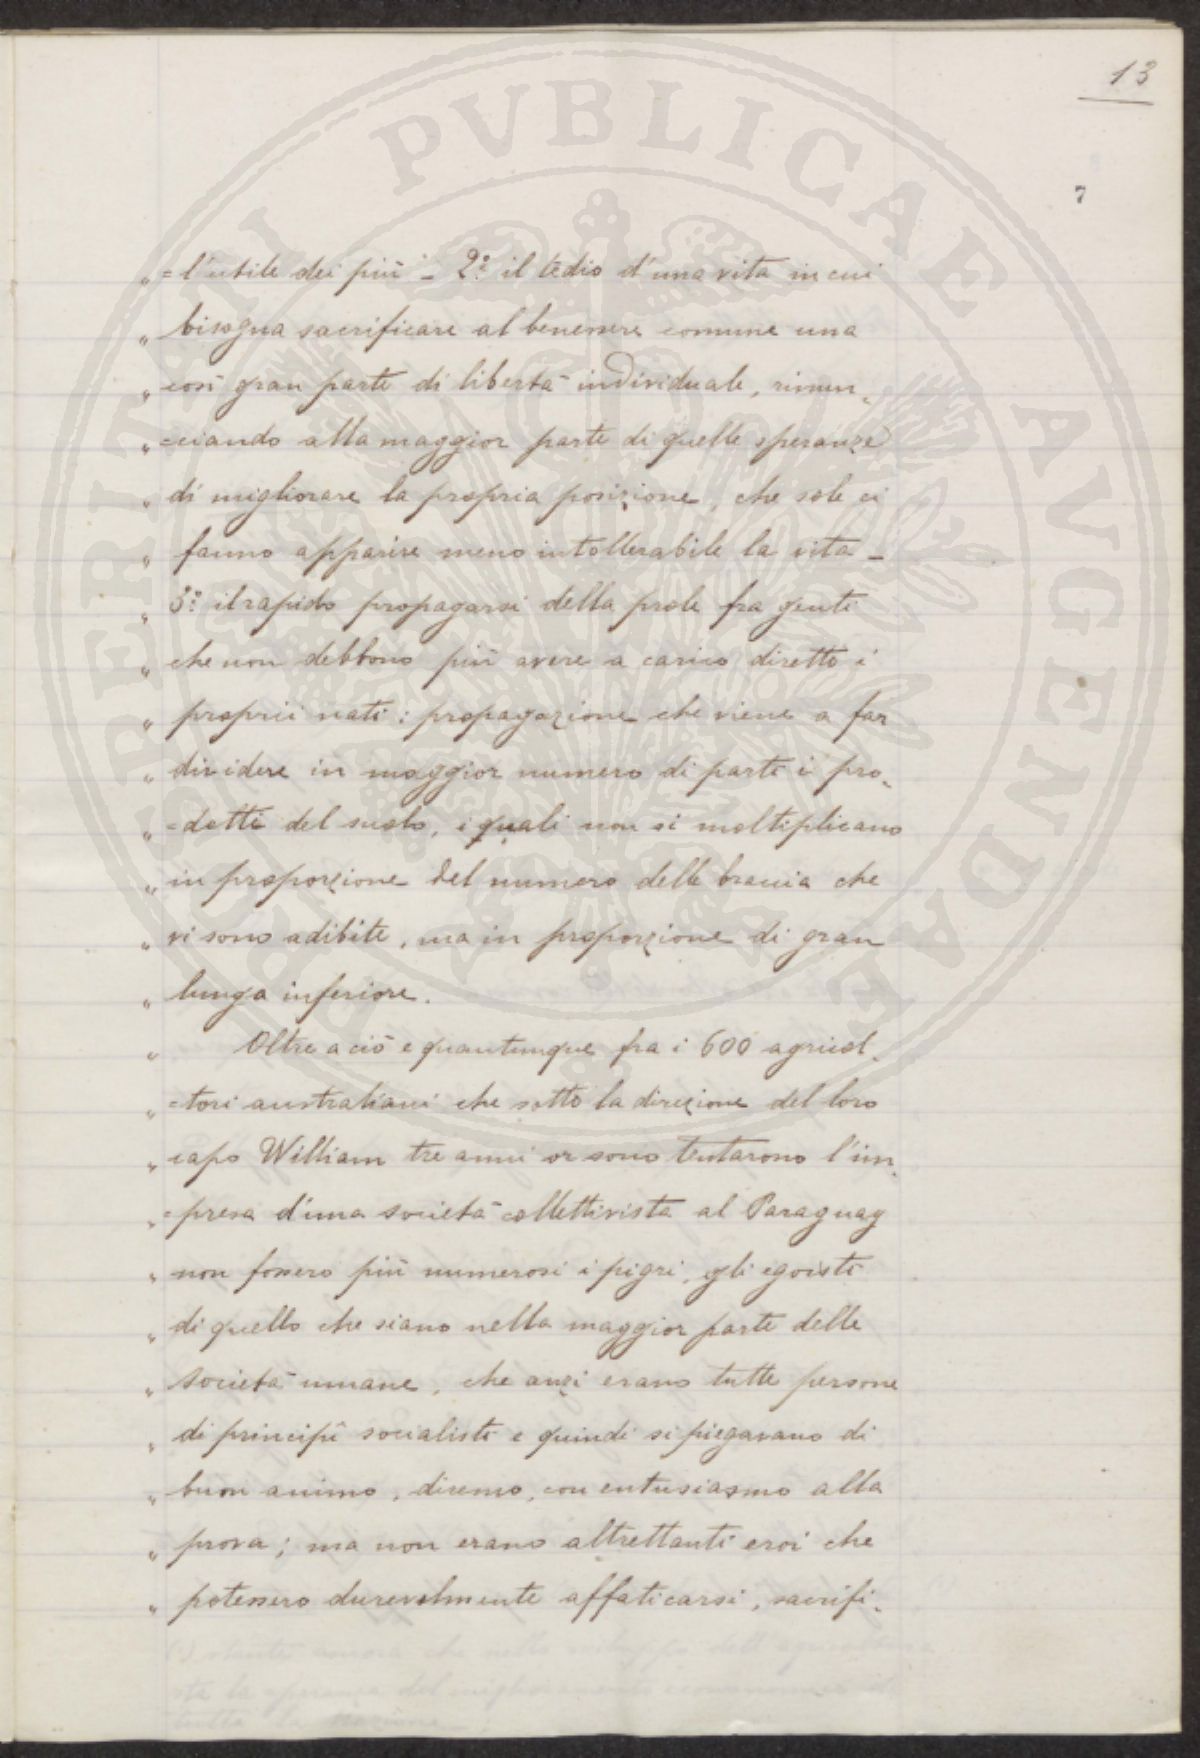 13
7
„ =l'utile dei più – 2º il tedio d'una vita in cui
„ bisogna sacrificare al benessere comune una
„ così gran parte di libertà individuale, rinun„
„ =ciando alla maggior parte di quelle speranze
„ di migliorare la propria posizione, che sole ci
„ fanno apparire meno intollerabile la vita –
„ 3º il rapido propagarsi della prole fra genti
„ che non debbono più avere a carico diretto i
„ proprii nati: propagazione che viene a far
„ dividere in maggior numero di parti i pro„
„ =dotti del suolo, i quali non si moltiplicano
„ in proporzione del numero delle braccia che
„ vi sono adibite, ma in proporzione di gran
„ lunga inferiore.
„ Oltre a ciò e quantunque fra i 600 agricol„
„ =tori australiani che sotto la direzione del loro
„ capo William tre anni or sono tentarono l'im„
„ =presa d'una società collettivista al Paraguay
„ non fossero più numerosi i pigri, gli egoisti
„ di quello che siano nella maggior parte delle
„ società umane, che anzi erano tutte persone
„ di principî socialisti e quindi si piegavano di
„ buon animo, diremo, con entusiasmo alla
„ prova; ma non erano altrettanti eroi che
„ potessero durevolmente affaticarsi, sacrifi„
PROSPERITATI PVBLICAE AVGENDAE